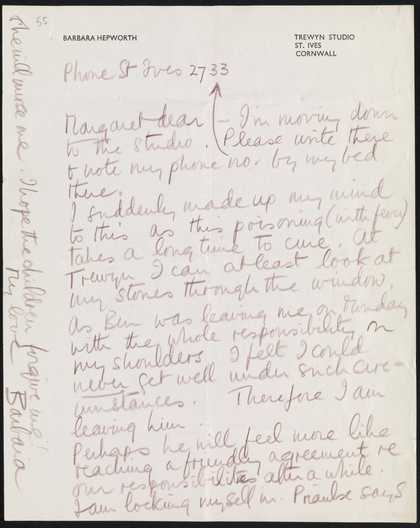 55
BARBARA HEPWORTH
TREWYN STUDIO
ST. IVES
CORNWALL
Phone St Ives 2733
Margaret dear – I'm moving down
to the Studio. Please write there
& note my phone no. by my bed
there.
I suddenly made up my mind
to this as this poisoning (with fever)
takes a long time to cure. At
Trewyn I can at least look at
my stones through the window.
As Ben was leaving me on Sunday
with the whole responsibility on
my shoulders I felt I could
never get well under such circ-
umstances. Therefore I am
leaving him.
Perhaps he will feel more like
reaching a friendly agreement re
our responsibilities after a while.
I am locking myself in. Praulse says
she will move me. I hope the children forgive me!
My love
Barbara